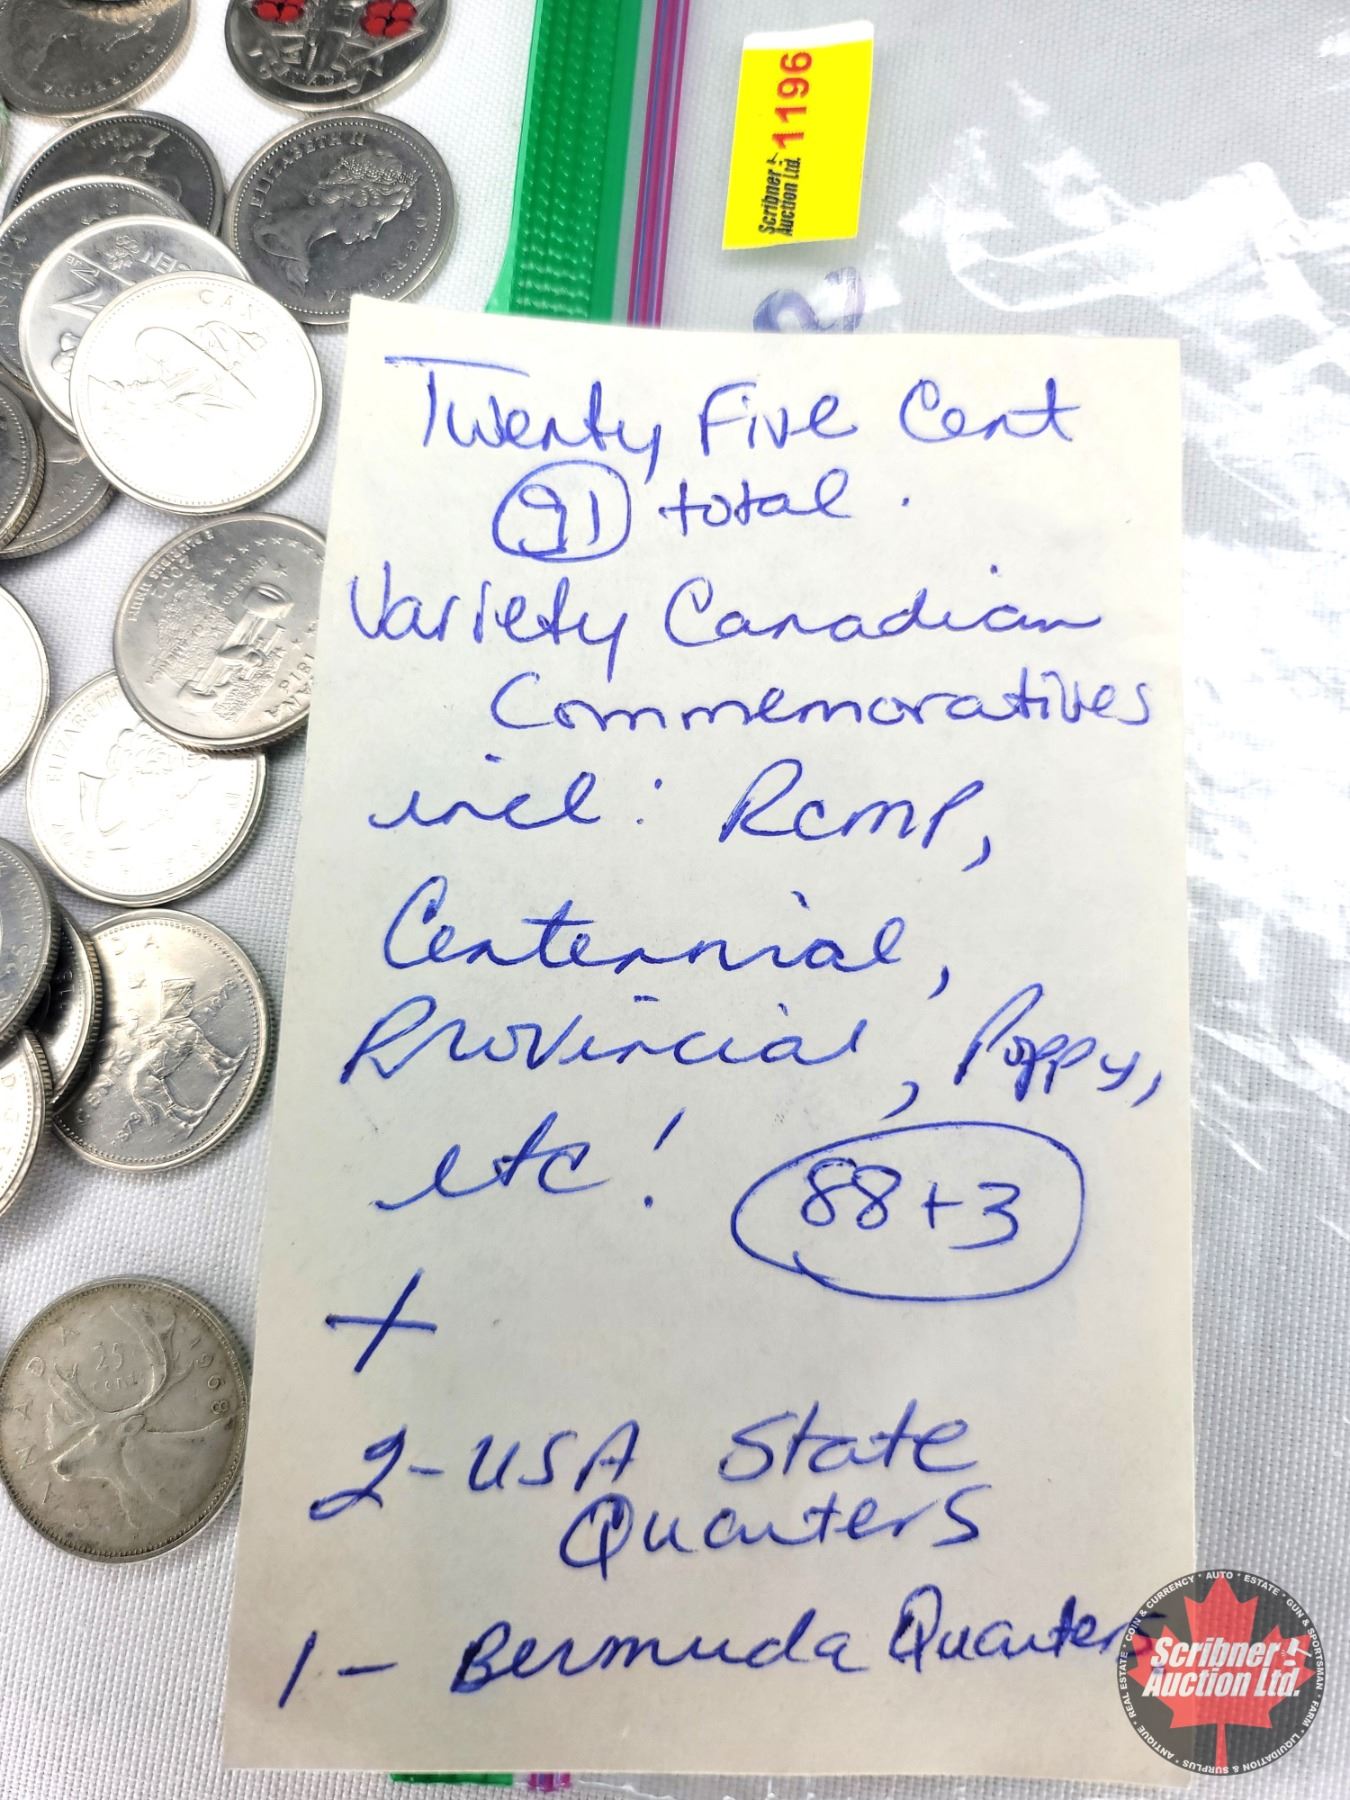 1196
Scribner
Auction Ltd.
Twenty Five Cent
91 total.
Variety Canadian
Commemoratives
incl: RCMP,
Centennial,
Provincial, Poppy,
etc!
88+3
+
2-USA State
Quarters
1- Bermuda Quarters
ELIZABETH II
CANADA
CANADA 1968
25
cents
COIN & CURRENCY • AUTO • ESTATE • GUN & SPORTSMAN • FARM • LIQUIDATION & SURPLUS • ANTIQUE • REAL ESTATE
Scribner
Auction Ltd.